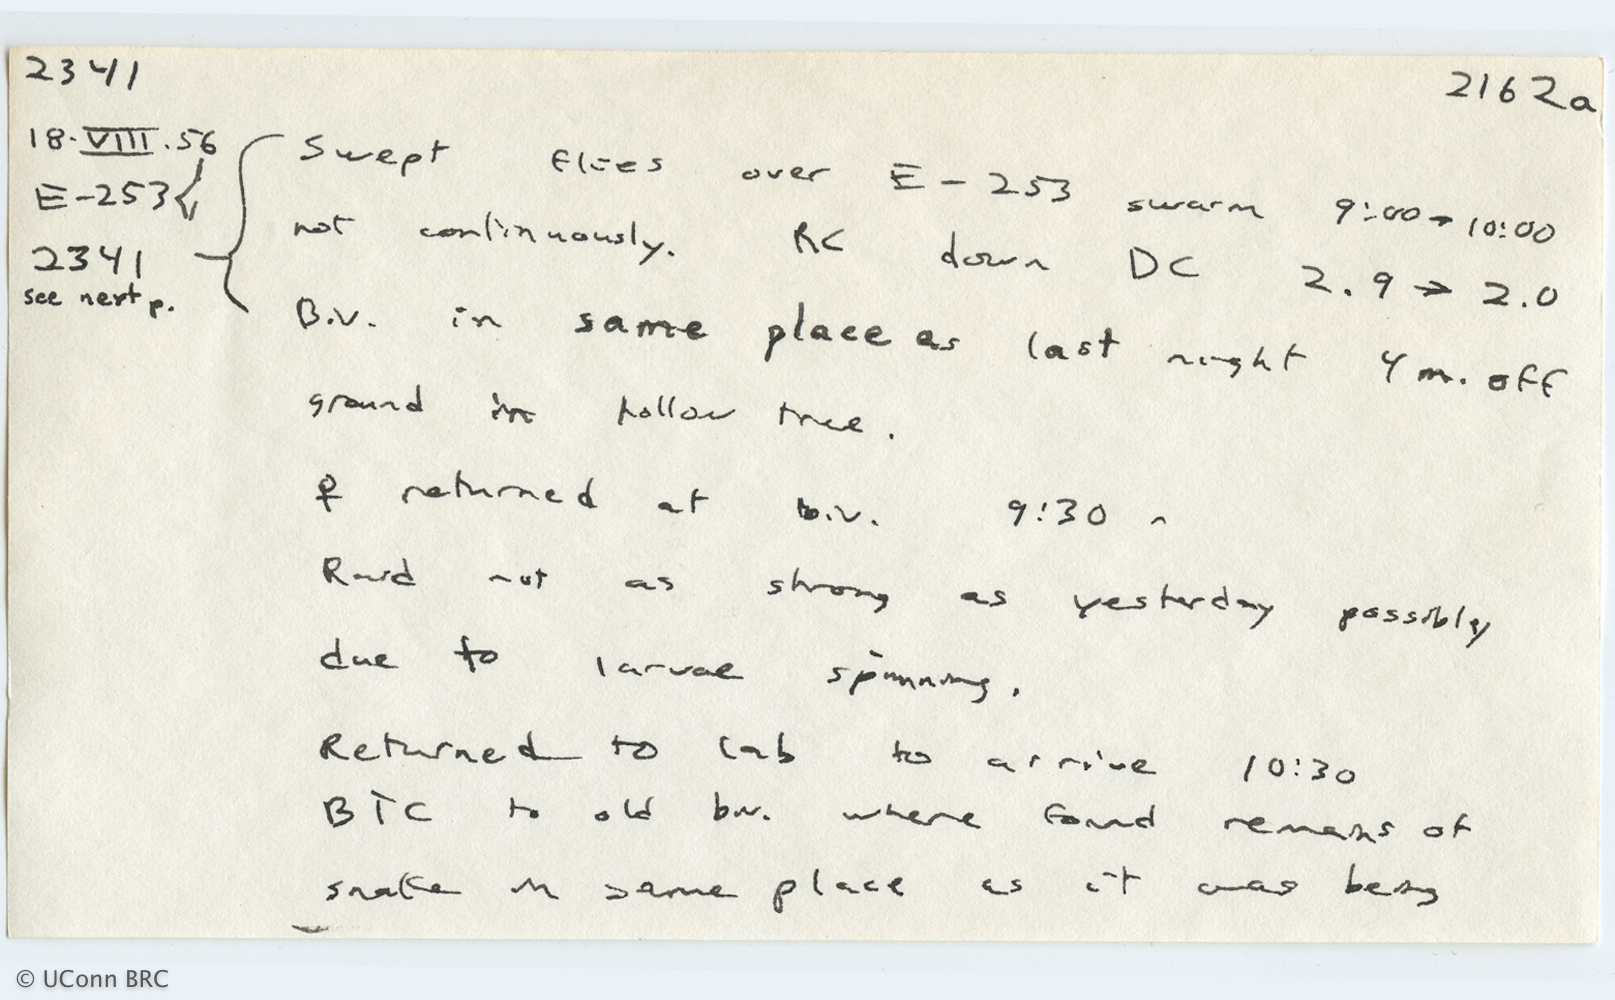 2341
2162a
18.VIII.56
E-253
2341
see next p.
Swept flies over E-253 swarm 9:00 → 10:00
not continuously. RC down DC 2.9 → 2.0
B.V. in same place as last night 4 m. off
ground in hollow tree.
♀ returned at b.v. 9:30
Raid not as strong as yesterday possibly
due to larvae spinning.
Returned to lab to arrive 10:30
BTC to old bv. where found remains of
snake in same place as it was being
© UConn BRC